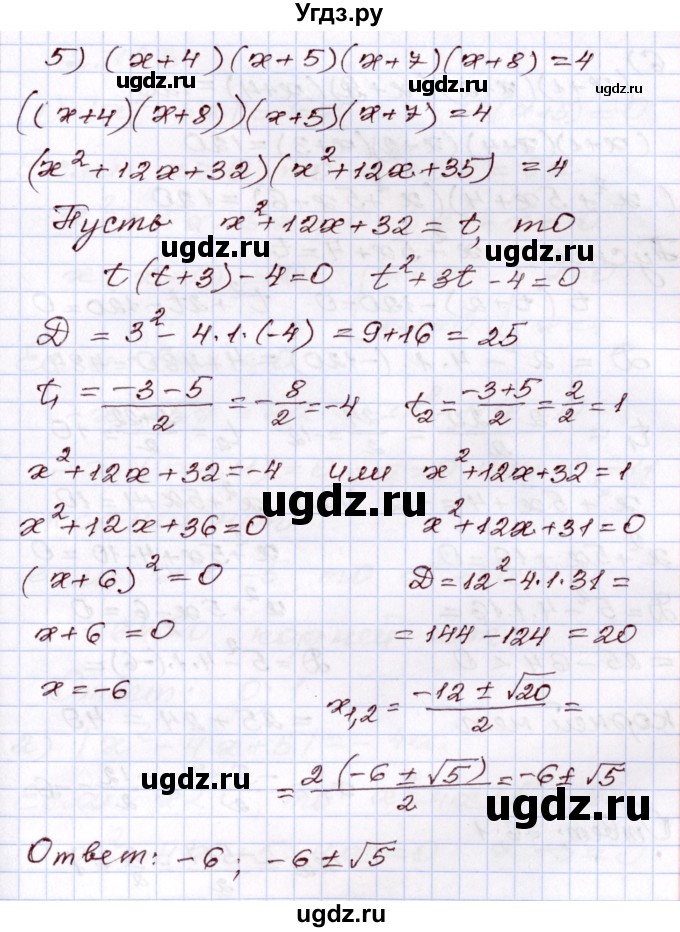 Угдз.ру
5) (x+4)(x+5)(x+7)(x+8)=4
ugdz.ru ugdz.ru
((x+4)(x+8))(x+5)(x+7)=4
(x²+12x+32)(x²+12x+35) =4
Пусть x²+12x+32=t, то
ugdz.ru
t(t+3)-4=0 t²+3t-4=0
D = 3²-4·1·(-4) = 9+16 = 25
t₁ = (-3-5)/2 = -8/2 = -4 t₂ = (-3+5)/2 = 2/2 = 1
x²+12x+32=-4 или x²+12x+32=1
ugdz.ru
x²+12x+36=0 x²+12x+31=0
(x+6)²=0 D=12²-4·1·31=
x+6=0 =144-124=20
x=-6 x₁,₂ = (-12±√20)/2 =
ugdz.ru
= 2(-6±√5)/2 = -6±√5
ugdz.ru
Ответ: -6; -6±√5
ugdz.ru